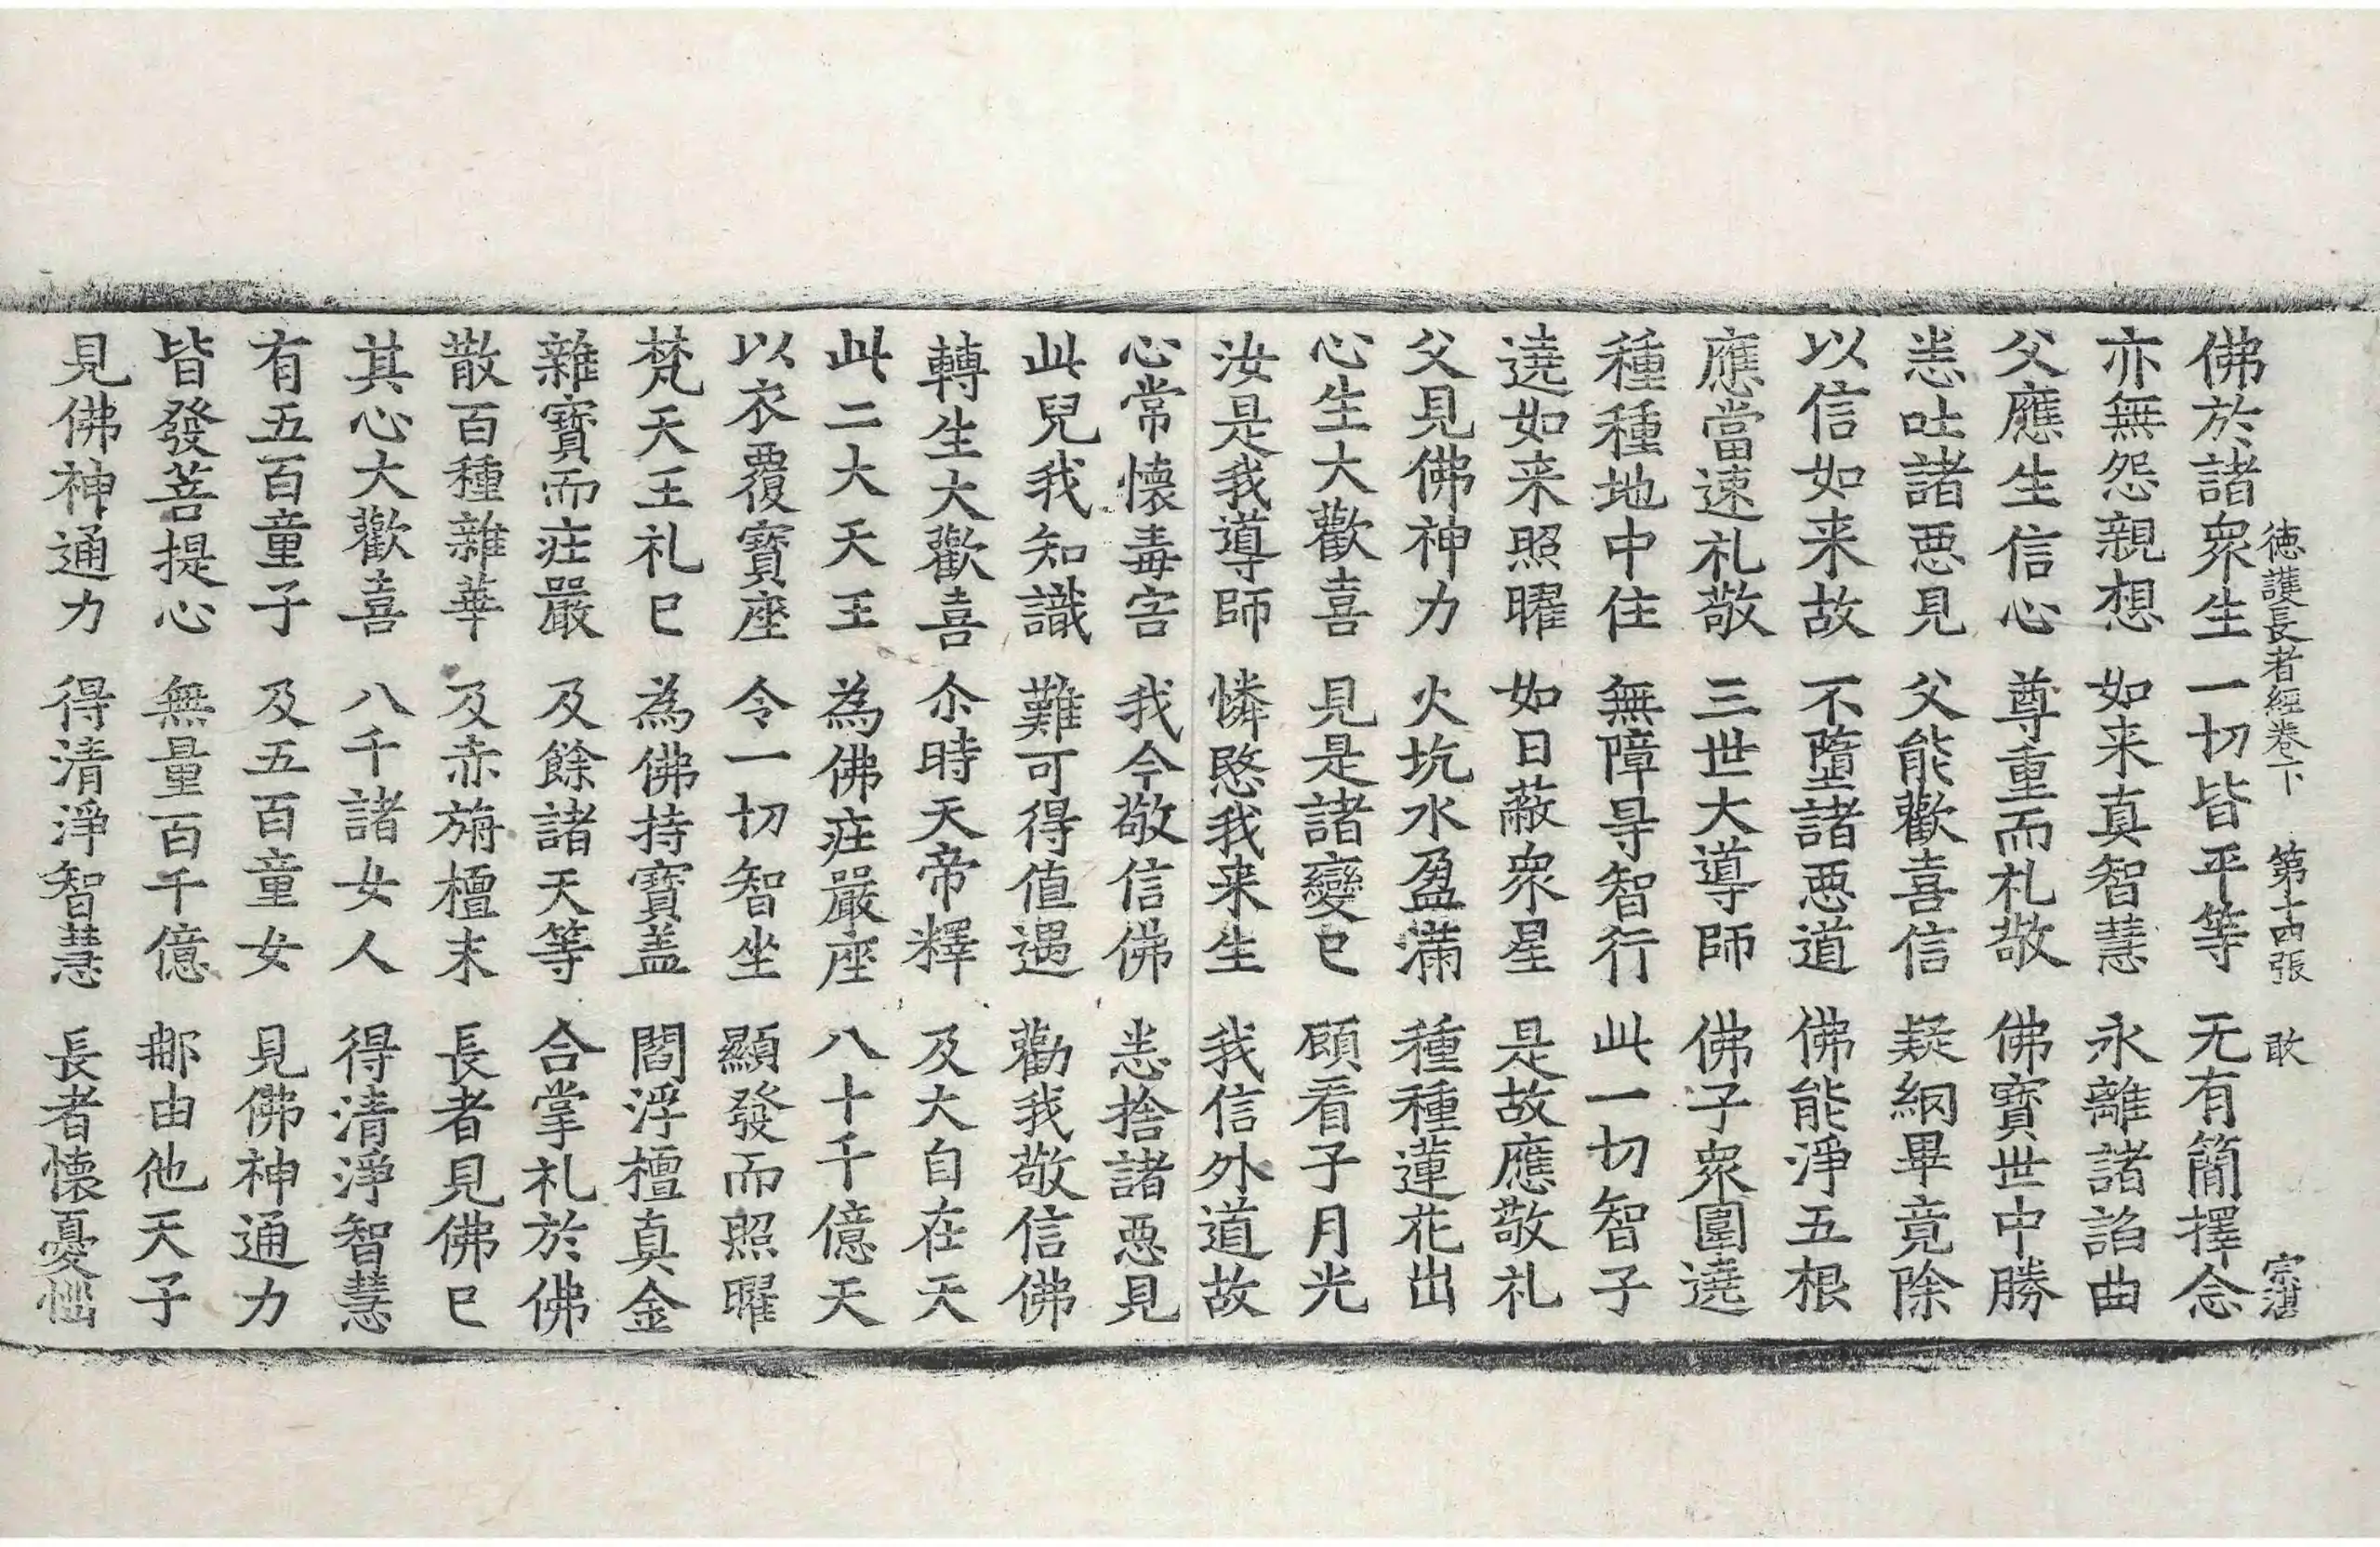 徳護長者經卷下 第十四張 敢 宗湛
佛於諸衆生 一切皆平等 无有簡擇念
亦無怨親想 如来真智慧 永離諸諂曲
父應生信心 尊重而礼敬 佛寶世中勝
恙吐諸惡見 父能歡喜信 疑網畢竟除
以信如来故 不墮諸惡道 佛能淨五根
應當速礼敬 三世大導師 佛子衆圍遶
種種地中住 無障㝵智行 此一切智子
遶如来照曜 如日蔽衆星 是故應敬礼
父見佛神力 火坑水盈滿 種種蓮花出
心生大歡喜 見是諸變已 顧看子月光
汝是我導師 憐愍我来生 我信外道故
心常懷毒害 我今敬信佛 恙捨諸惡見
此兒我知識 難可得值遇 勸我敬信佛
轉生大歡喜 尒時天帝釋 及大自在天
此二大天王 為佛庄嚴座 八十千億天
以衣覆寶座 令一切智坐 顯發而照曜
梵天王礼已 為佛持寶盖 閻浮檀真金
雜寶而庄嚴 及餘諸天等 合掌礼於佛
散百種雜華 及赤旃檀末 長者見佛已
其心大歡喜 八千諸女人 得清淨智慧
有五百童子 及五百童女 見佛神通力
皆發菩提心 無量百千億 那由他天子
見佛神通力 得清淨智慧 長者懷憂惱